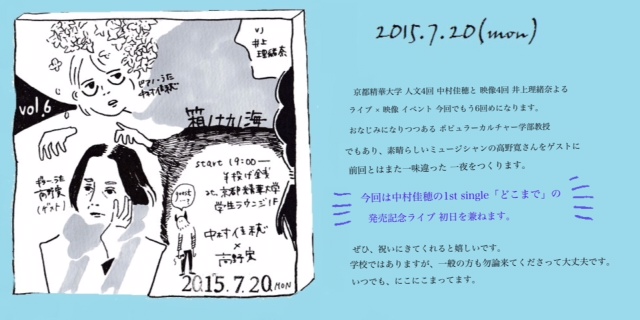 VJ
井上
理緒奈
ピアノ・うた
中村佳穂
vol.6
箱庭の海
ギター・うた
高野寛
(ゲスト)
start 19:00—
投げ銭
at. 京都精華大学
学生ラウンジ1F
guest
中村佳穂
×
高野寛
2015.7.20.MON
2015.7.20(mon)
京都精華大学 人文4回 中村佳穂と 映像4回 井上理緒奈よる
ライブ × 映像 イベント 今回でもう6回めになります。
おなじみになりつつある ポピュラーカルチャー学部教授
でもあり、素晴らしいミュージシャンの高野寛さんをゲストに
前回とはまた一味違った 一夜をつくります。
今回は中村佳穂の1st single「どこまで」の
発売記念ライブ 初日を兼ねます。
ぜひ、祝いにきてくれると嬉しいです。
学校ではありますが、一般の方も勿論来てくださって大丈夫です。
いつでも、にこにこまってます。